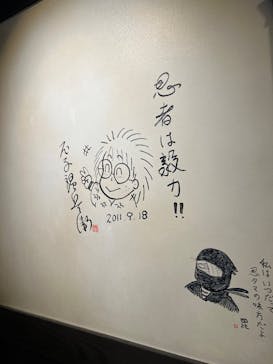 忍者は毅力!!
尼子騒兵衛
2011.9.18
私はいつだって
忍タマの味方だよ